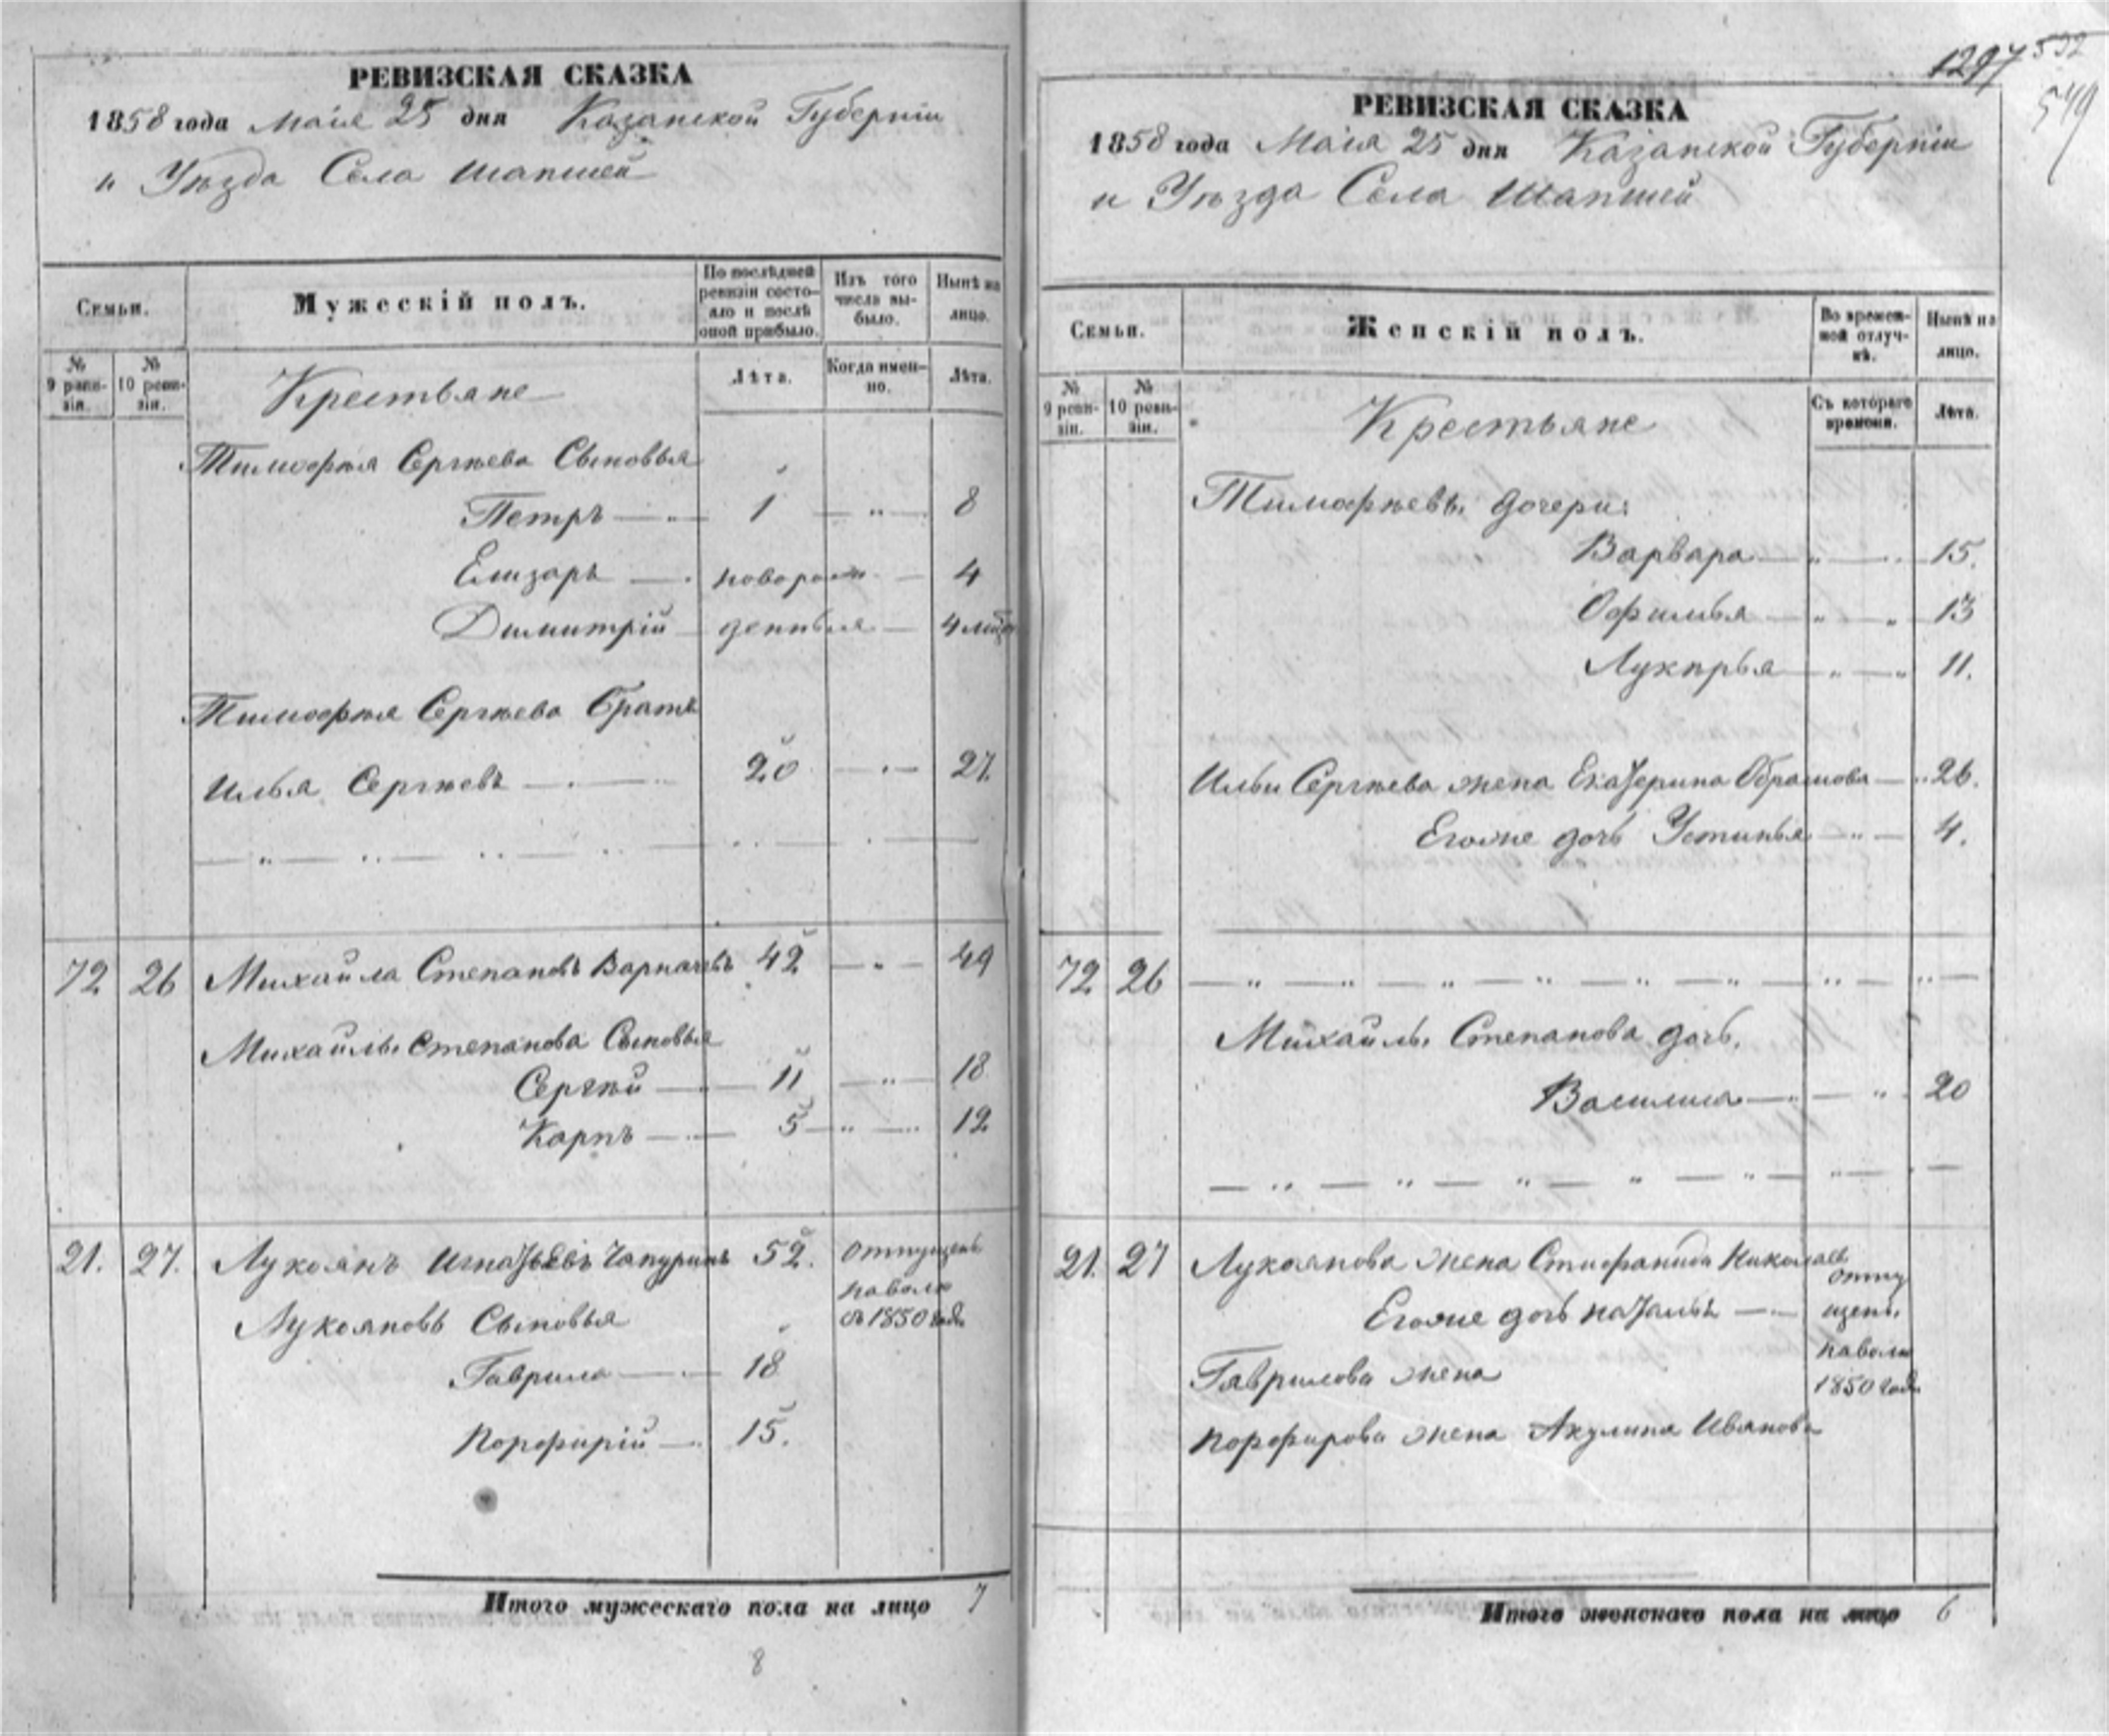 РЕВИЗСКАЯ СКАЗКА
1858 года Маія 25 дня Казанской Губерніи
и Уѣзда Села Шапшей
Семьи.
Мужескій полъ.
По послѣдней ревизіи состояло и послѣ оной прибыло.
Изъ того числа выбыло.
Нынѣ на лицо.
№ 9 ревизіи.
№ 10 ревизіи.
Крестьяне
Лѣта.
Когда именно.
Лѣта.
Тимофѣя Сергѣева Сыновья
Петръ — „ — 1 — „ — 8
Елизаръ — новорож — 4
Димитрій — денныя — 4
Тимофѣя Сергѣева Братъ
Илья Сергѣевъ — 20 — „ — 27
72 26 Михайла Степановъ 42 — „ — 49
Михайлы Степанова Сыновья
Сергѣй — 11 — „ — 18
Карпъ — 5 — „ — 12
21. 27. Лукоянъ Игнатьевъ Чапуринъ 52. отпущенъ
наволю
съ 1850 года
Лукояновы Сыновья
Гаврила — 18
Порфирій — 15.
Итого мужескаго пола на лицо 7
8
1297 592
549
РЕВИЗСКАЯ СКАЗКА
1858 года Маія 25 дня Казанской Губерніи
и Уѣзда Села Шапшей
Семьи.
Женскій полъ.
Во временной отлучкѣ.
Нынѣ на лицо.
№ 9 ревизіи.
№ 10 ревизіи.
Крестьяне
Съ котораго времени.
Лѣта.
Тимофѣевы дочери:
Варвара — „ — 15.
Офимья — „ — „ — 13
Лукирья — „ — „ — 11.
Ильи Сергѣева жена Екатерина Обрамова — „ 26.
Егоже дочь Устинья — „ — 4.
72 26 — „ — „ — „ — „ — „ — „ — „ — „ —
Михайлы Степанова дочь.
Василиса — „ — „ 20
21. 27 Лукоянова жена Стифанида Николаев
отпу
Егоже дочь наталья — щены.
наволю
Гаврилова жена
1850 года
порфирова жена Акулина Иванова
Итого женскаго пола на лицо 6